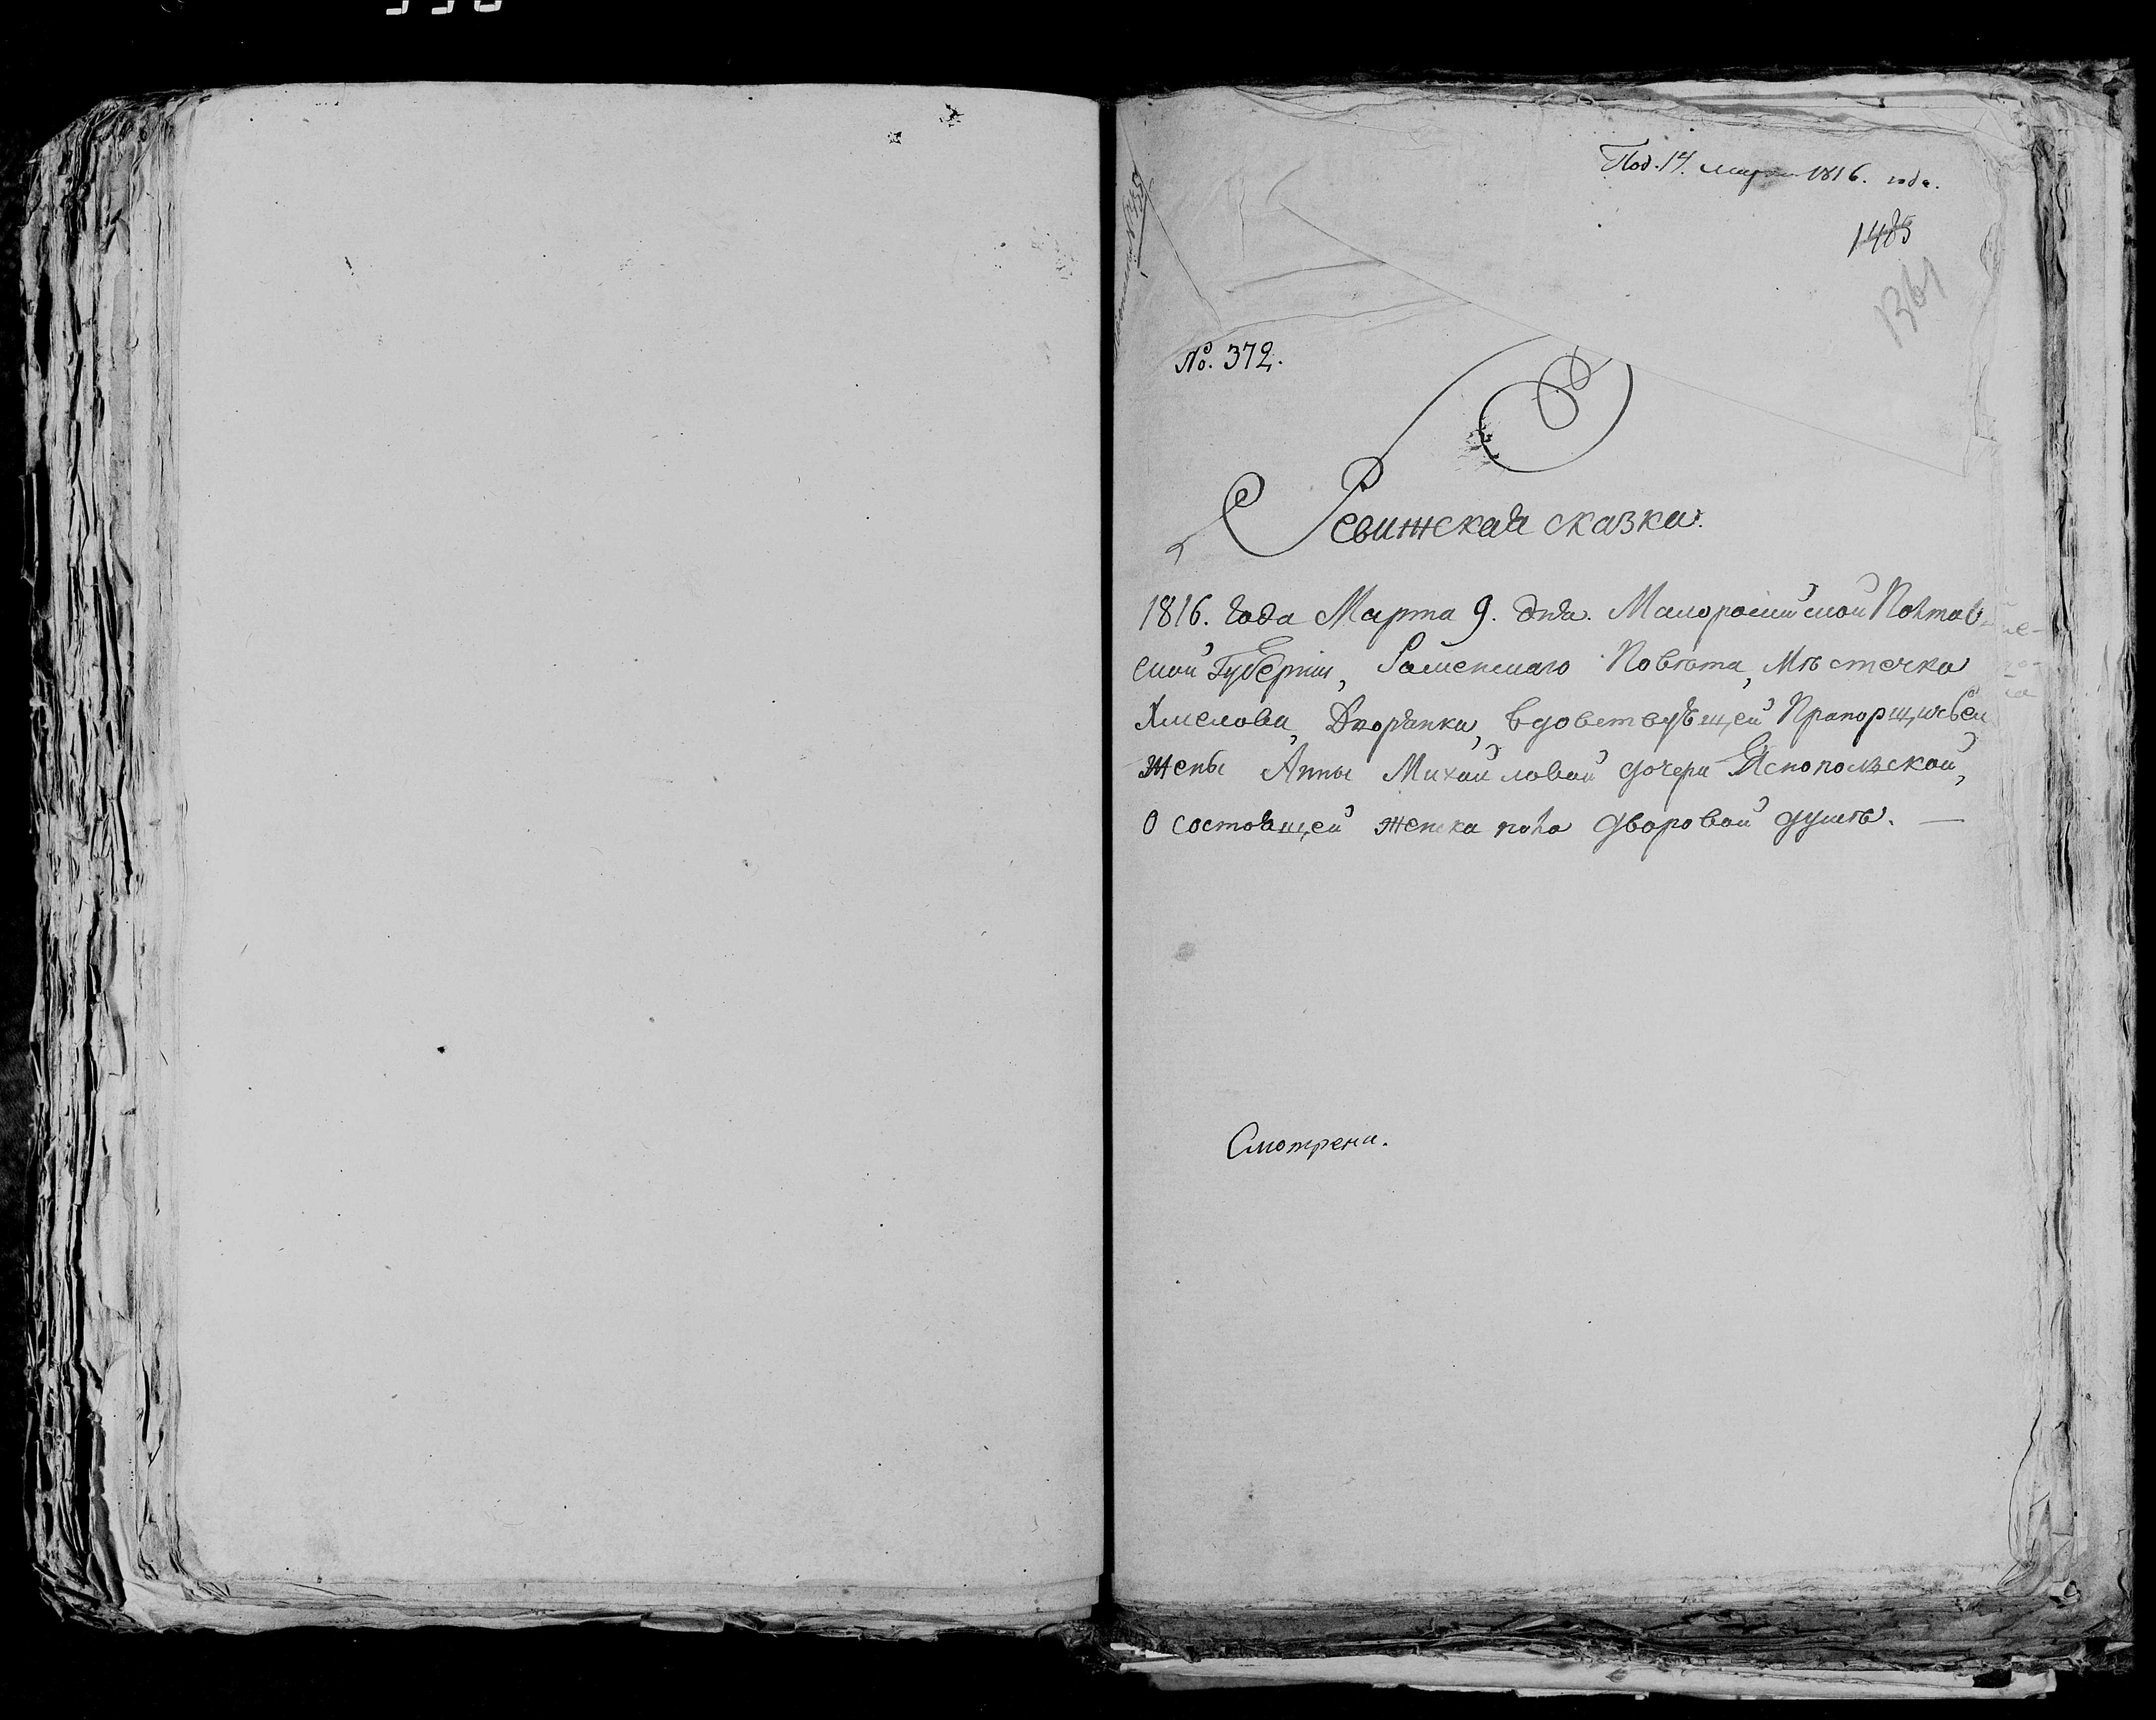 Под. 14. марта 1816. года.
1485
1361
№. 372.
Ревижская сказка.
1816. Года Марта 9. дня. Малоросийской Полтав-
ской Губерніи, Роменского Повѣта, Мѣстечка
Хмелова, Дворянки, вдовствующей Прапорщичьей
жены Анны Михайловой дочери Яснопольской,
О состоящей женска пола дворовой душѣ. —
Смотрена.